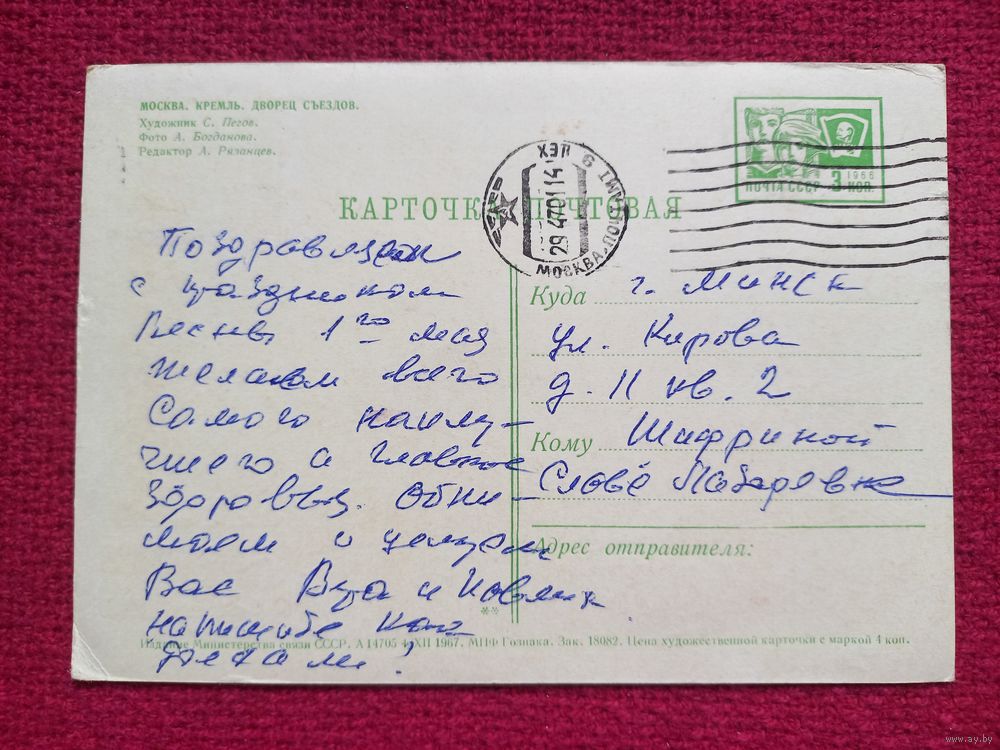 МОСКВА. КРЕМЛЬ. ДВОРЕЦ СЪЕЗДОВ.
Художник С. Пегов.
Фото А. Богданова.
Редактор А. Рязанцев.
1966
ПОЧТА СССР 3 КОП.
МОСКВА-ПОЧТАМТ 9 ЦЕХ
29 47001 14
КАРТОЧКА ПОЧТОВАЯ
Поздравляем
с праздником
Весны 1го мая
желаем всего
Самого наилу-
чшего а главное
здоровья. Обни-
маем и целуем
Вас
напишите как
дехали!
Куда г. Минск
ул. Кирова
д. 11 кв. 2
Кому Шифриной
Славе Лазаревне
Адрес отправителя:
Издание Министерства связи СССР. А 14705 4/XII 1967. МПФ Гознака. Зак. 18082. Цена художественной карточки с маркой 4 коп.
www.ay.by